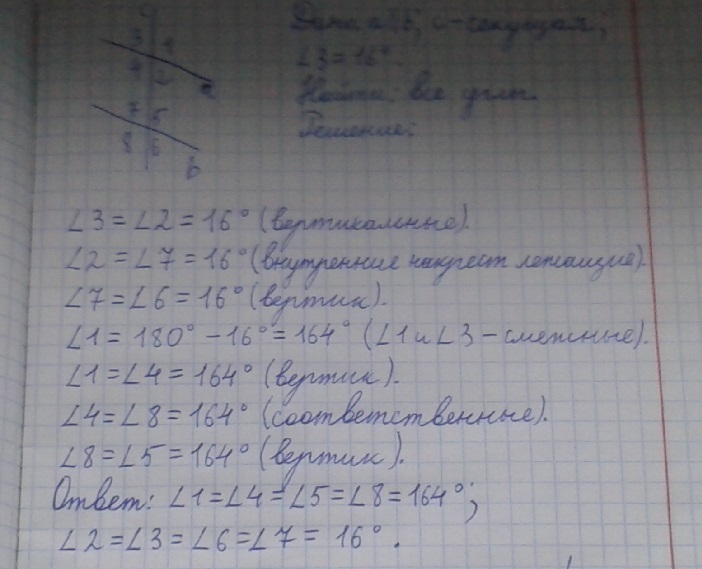 c
3 1
4 2
a
7 5
8 6
b
Дано: a||b; c-секущая;
∠3=16°.
Найти: все углы.
Решение:
∠3=∠2=16° (вертикальные).
∠2=∠7=16° (внутренние накрест лежащие).
∠7=∠6=16° (вертик).
∠1=180°-16°=164° (∠1 и ∠3-смежные).
∠1=∠4=164° (вертик).
∠4=∠8=164° (соответственные).
∠8=∠5=164° (вертик).
Ответ: ∠1=∠4=∠5=∠8=164°;
∠2=∠3=∠6=∠7= 16°.